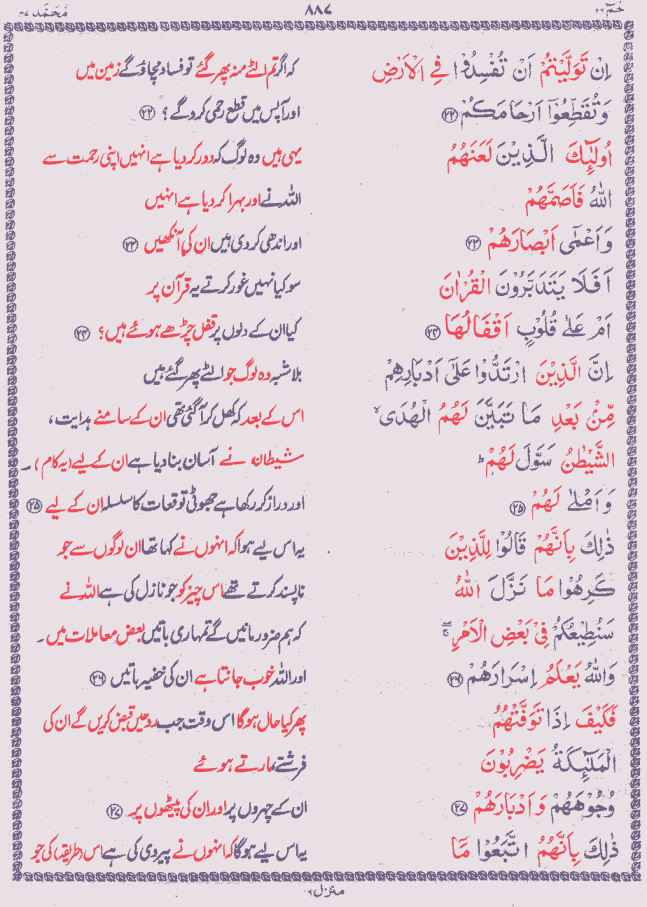 حٰمٓ ۲۶ ۸۸۷ مُحَمَّد ۴۷
اِنْ تَوَلَّيْتُمْ اَنْ تُفْسِدُوْا فِي الْاَرْضِ کہ اگر تم الٹے منہ پھر گئے تو فساد مچاؤ گے زمین میں
وَتُقَطِّعُوْٓا اَرْحَامَكُمْ ۲۲ اور آپس میں قطع رحمی کرو گے؟ ۲۲
اُولٰٓئِكَ الَّذِيْنَ لَعَنَهُمُ یہی ہیں وہ لوگ کہ دور کر دیا ہے انہیں اپنی رحمت سے
اللّٰهُ فَاَصَمَّهُمْ اللہ نے اور بہرا کر دیا ہے انہیں
وَاَعْمٰٓى اَبْصَارَهُمْ ۲۳ اور اندھی کر دی ہیں ان کی آنکھیں ۲۳
اَفَلَا يَتَدَبَّرُوْنَ الْقُرْاٰنَ سو کیا نہیں غور کرتے یہ قرآن پر
اَمْ عَلٰى قُلُوْبٍ اَقْفَالُهَا ۲۴ کیا ان کے دلوں پر قفل چڑھے ہوئے ہیں؟ ۲۴
اِنَّ الَّذِيْنَ ارْتَدُّوْا عَلٰٓى اَدْبَارِهِمْ بلاشبہ وہ لوگ جو الٹے پھر گئے ہیں
مِّنْۢ بَعْدِ مَا تَبَيَّنَ لَهُمُ الْهُدَى ۙ اس کے بعد کہ کھل کر آ گئی تھی ان کے سامنے ہدایت،
الشَّيْطٰنُ سَوَّلَ لَهُمْ ؕ شیطان نے آسان بنا دیا ہے ان کے لیے (یہ کام)۔
وَاَمْلٰى لَهُمْ ۲۵ اور دراز کر رکھا ہے جھوٹی توقعات کا سلسلہ ان کے لیے ۲۵
ذٰلِكَ بِاَنَّهُمْ قَالُوْا لِلَّذِيْنَ یہ اس لیے ہوا کہ انہوں نے کہا تھا ان لوگوں سے جو
كَرِهُوْا مَا نَزَّلَ اللّٰهُ ناپسند کرتے تھے اس چیز کو جو نازل کی ہے اللہ نے
سَنُطِيْعُكُمْ فِيْ بَعْضِ الْاَمْرِ ۖۚ کہ ہم ضرور مانیں گے تمہاری باتیں بعض معاملات میں۔
وَاللّٰهُ يَعْلَمُ اِسْرَارَهُمْ ۲۶ اور اللہ خوب جانتا ہے ان کی خفیہ باتیں ۲۶
فَكَيْفَ اِذَا تَوَفَّتْهُمُ پھر کیا حال ہوگا اس وقت جب روحیں قبض کریں گے ان کی
الْمَلٰٓئِكَةُ يَضْرِبُوْنَ فرشتے، مارتے ہوئے
وُجُوْهَهُمْ وَاَدْبَارَهُمْ ۲۷ ان کے چہروں پر اور ان کی پیٹھوں پر ۲۷
ذٰلِكَ بِاَنَّهُمُ اتَّبَعُوْا مَآ یہ اس لیے ہوگا کہ انہوں نے پیروی کی ہے اس (طریقہ) کی جو
منزل ۶